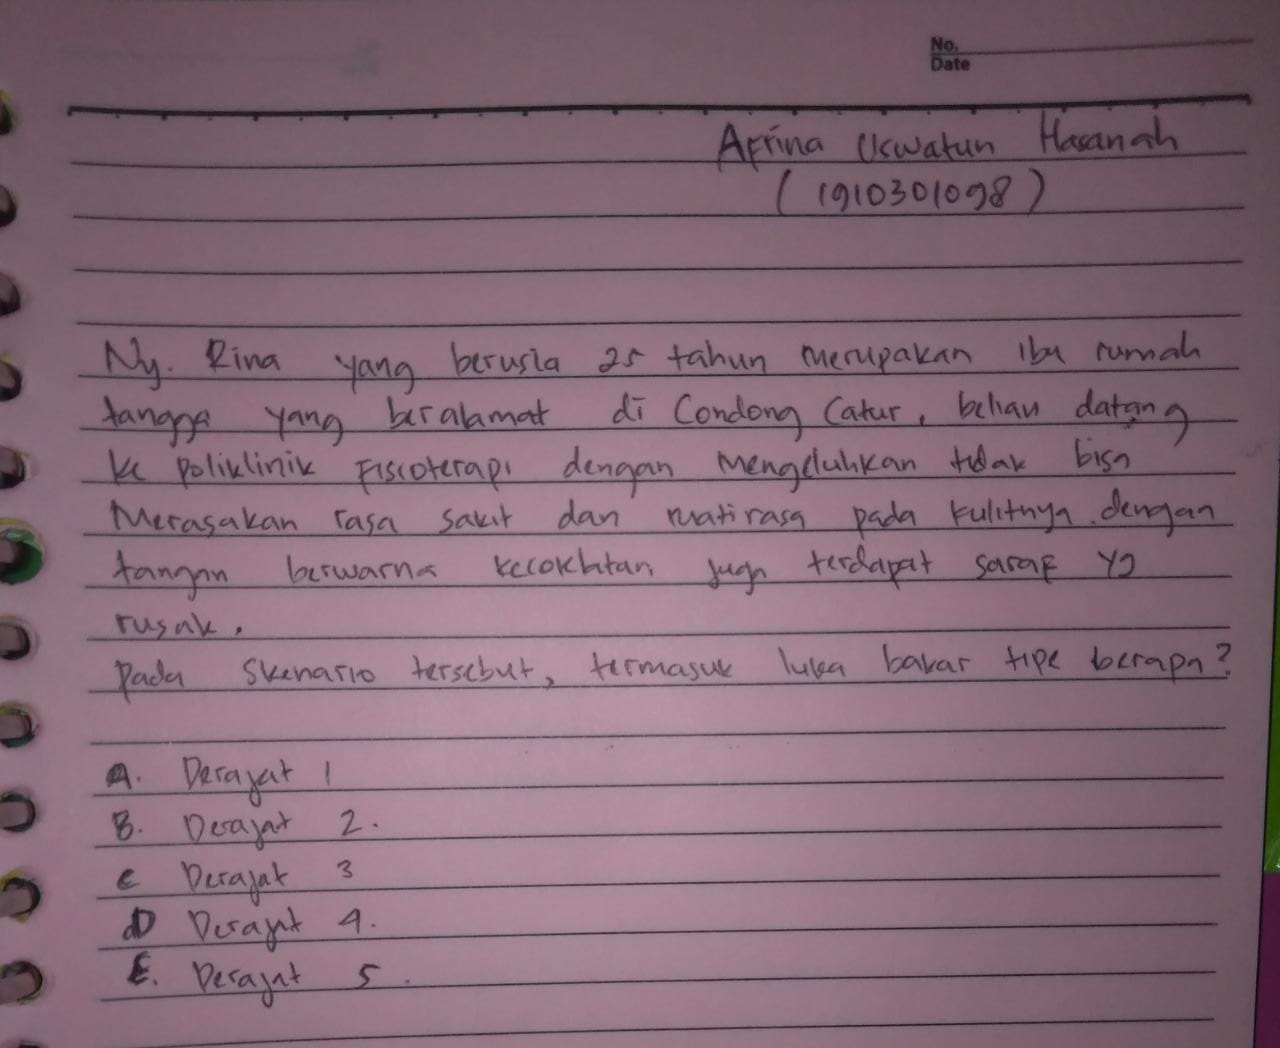 No.
Date
Afrina Uswatun Hasanah
(1910301098)
Ny. Rina yang berusia 25 tahun merupakan ibu rumah
tangga yang beralamat di Condong Catur, beliau datang
ke poliklinik Fisioterapi dengan mengeluhkan tidak bisa
merasakan rasa sakit dan matirasa pada kulitnya. dengan
tangan berwarna kecoklatan juga terdapat saraf yg
rusak.
pada skenario tersebut, termasuk luka bakar tipe berapa?
A. Derajat 1
B. Derajat 2.
C Derajat 3
D Derajat 4.
E. Derajat 5.